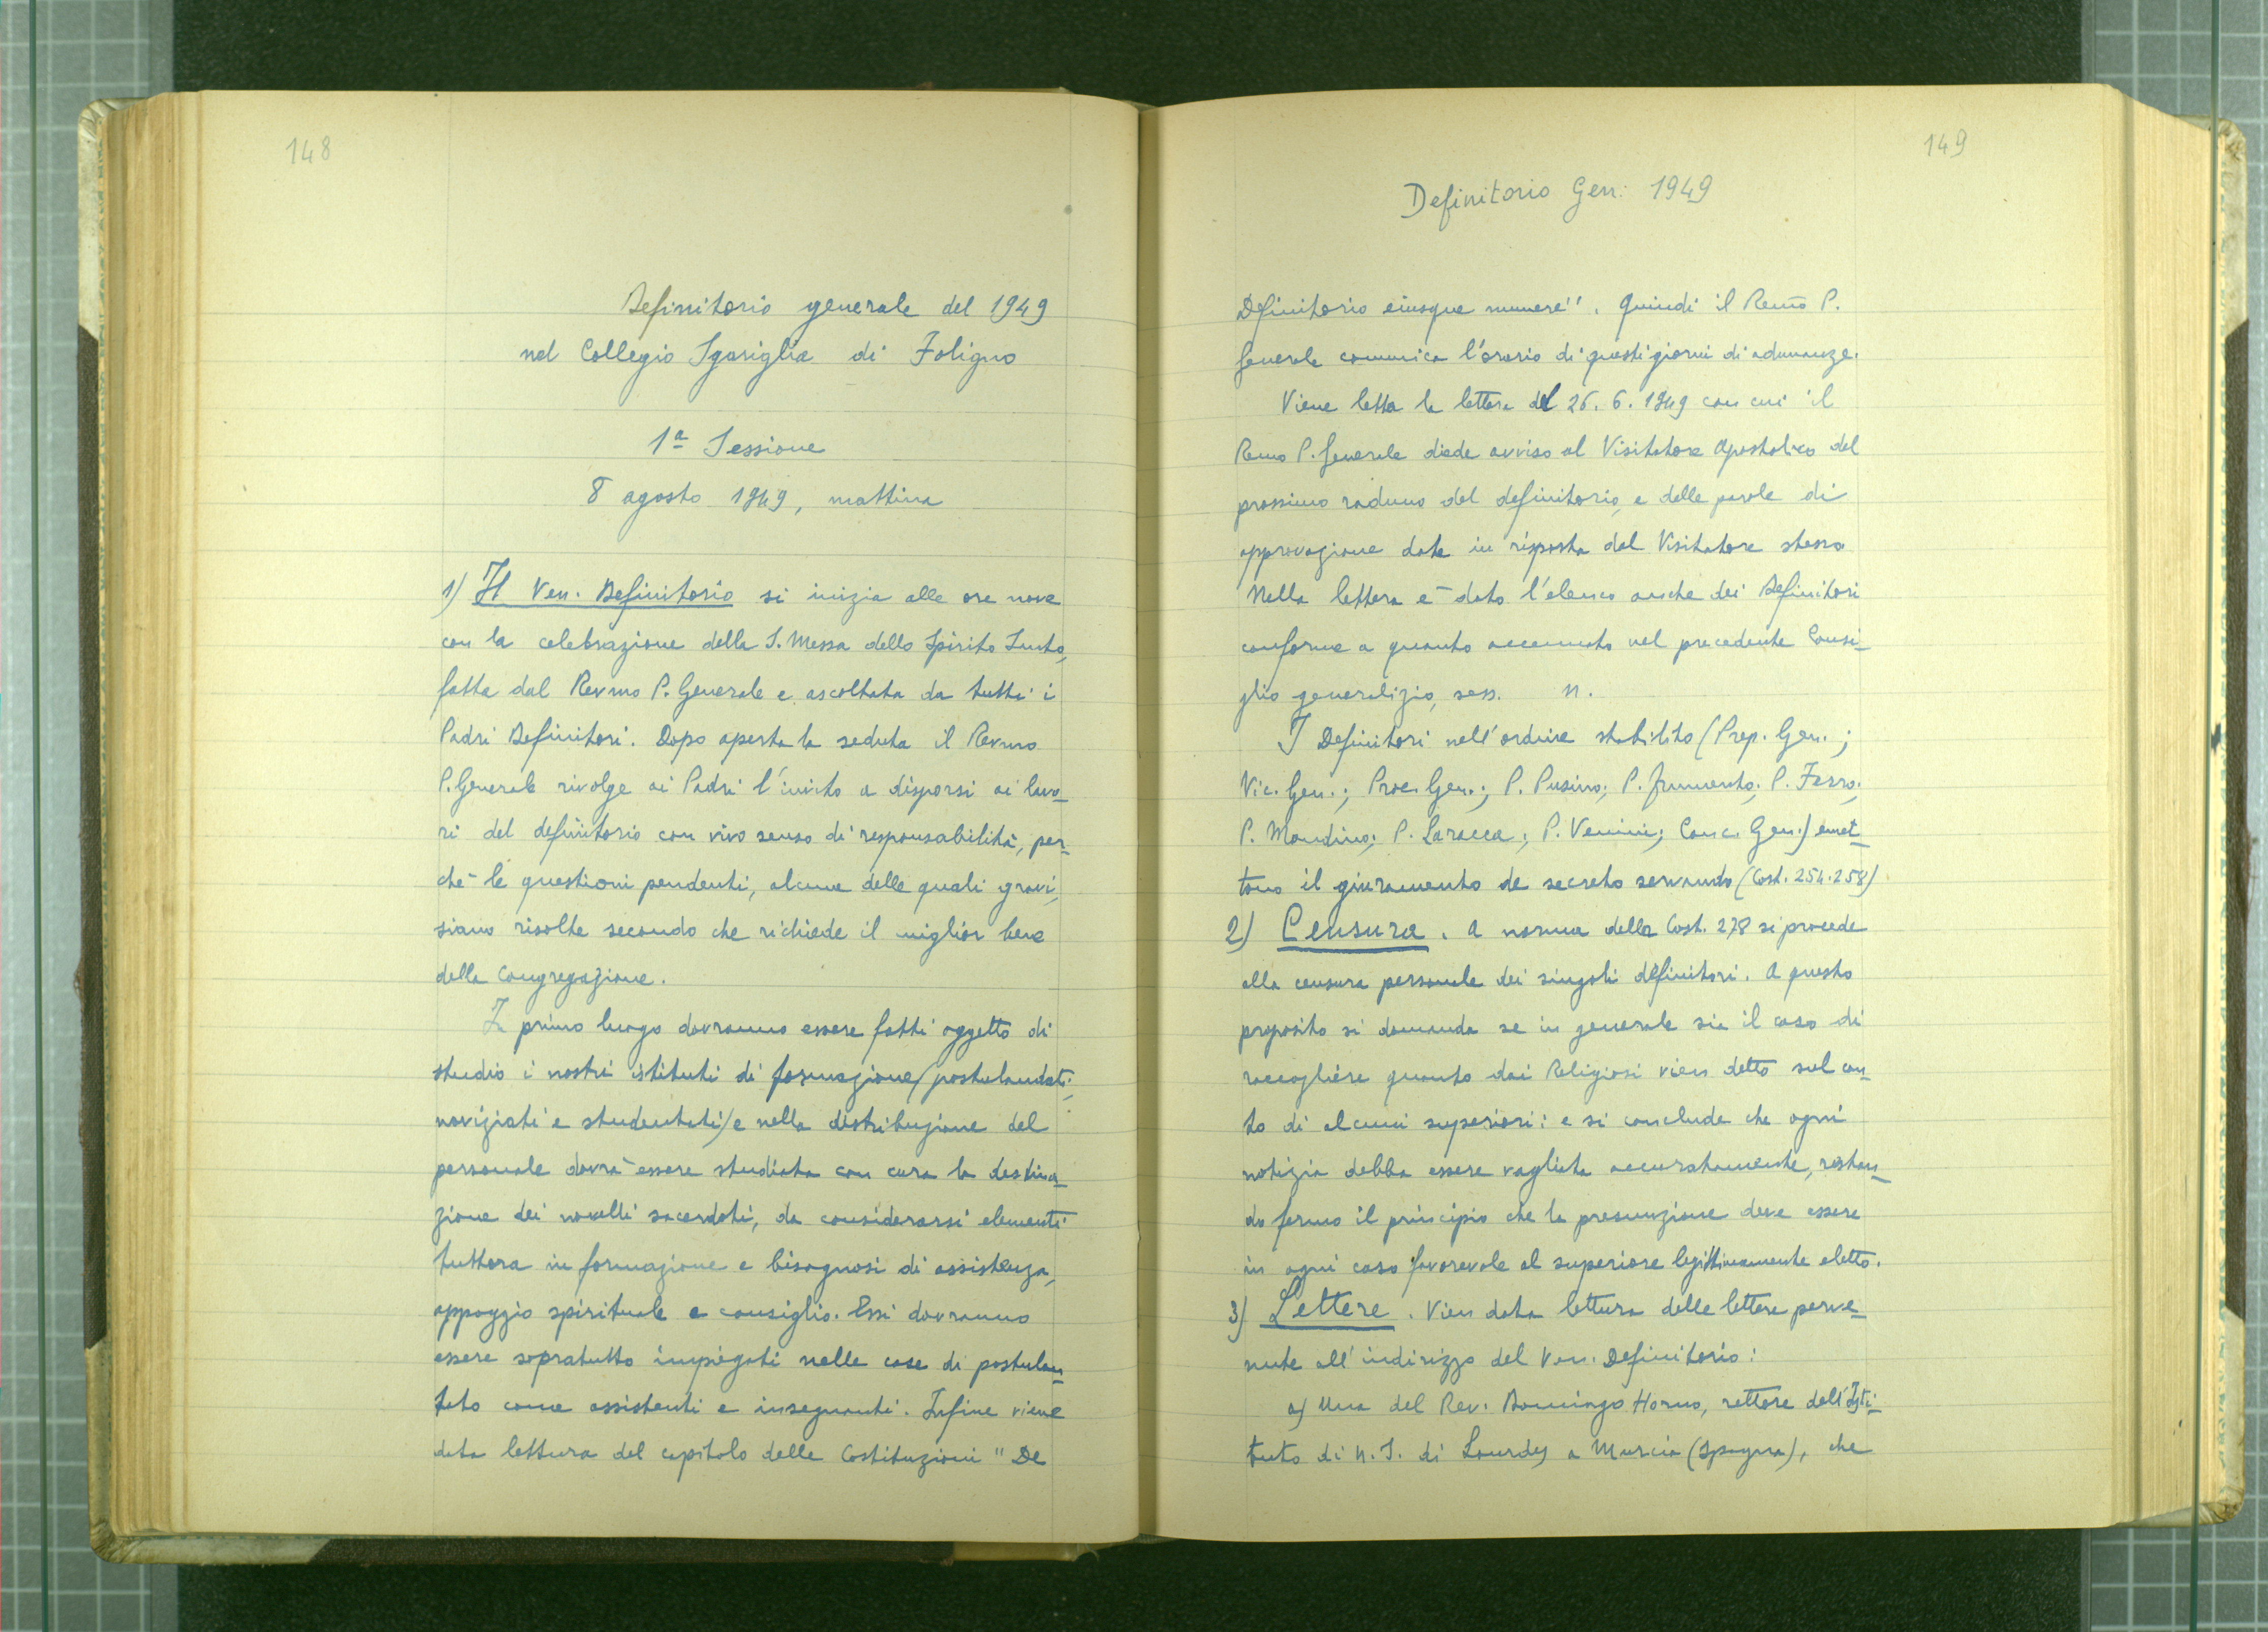 148
Definitorio generale del 1949
nel Collegio Sgariglia di Foligno
1ª Sessione
8 agosto 1949, mattina
1) Il Ven. Definitorio si inizia alle ore nove
con la celebrazione della S. Messa dello Spirito Santo,
fatta dal Rev.mo P. Generale e ascoltata da tutti i
Padri Definitori. Dopo aperta la seduta il Rev.mo
P. Generale rivolge ai Padri l'invito a disporsi ai lavo-
ri del definitorio con vivo senso di responsabilità, per-
chè le questioni pendenti, alcune delle quali gravi,
siano risolte secondo che richiede il miglior bene
della Congregazione.
In primo luogo dovranno essere fatti oggetto di
studio i nostri istituti di formazione (postulandati,
noviziati e studentati) e nella distribuzione del
personale dovrà essere studiata con cura la destina-
zione dei novelli sacerdoti, da considerarsi elementi
tuttora in formazione e bisognosi di assistenza,
appoggio spirituale e consiglio. Essi dovranno
essere sopratutto impiegati nelle case di postulan-
tato come assistenti e insegnanti. Infine viene
data lettura del capitolo delle Costituzioni "De
149
Definitorio Gen: 1949
Definitorio eiusque munere". Quindi il Rev.mo P.
Generale comunica l'orario di questi giorni di adunanze.
Viene letta la lettera del 26.6.1949 con cui il
Rev.mo P. Generale diede avviso al Visitatore Apostolico del
prossimo raduno del definitorio, e delle parole di
approvazione date in risposta dal Visitatore stesso
Nella lettera è dato l'elenco anche dei Definitori
conforme a quanto accennato nel precedente Consi-
glio generalizio, sess. n.
I Definitori nell'ordine stabilito (Prep. Gen.;
Vic. Gen.; Proc. Gen.; P. Pusino; P. Frumento; P. Ferro;
P. Mondino; P. Laracca; P. Venini; Canc. Gen.) emet-
tono il giuramento de secreto servando (Cost. 254.258)
2) Censura. A norma della Cost. 278 si procede
alla censura personale dei singoli definitori. A questo
proposito si domanda se in generale sia il caso di
raccogliere quanto dai Religiosi vien detto sul con-
to di alcuni superiori: e si conclude che ogni
notizia debba essere vagliata accuratamente, restan-
do fermo il principio che la presunzione deve essere
in ogni caso favorevole al superiore legittimamente eletto.
3) Lettere. Vien data lettura delle lettere perve-
nute all'indirizzo del Ven. Definitorio:
a) Una del Rev. Domingo Horno, rettore dell'Isti-
tuto di N.S. di Lourdes a Murcia (Spagna), che